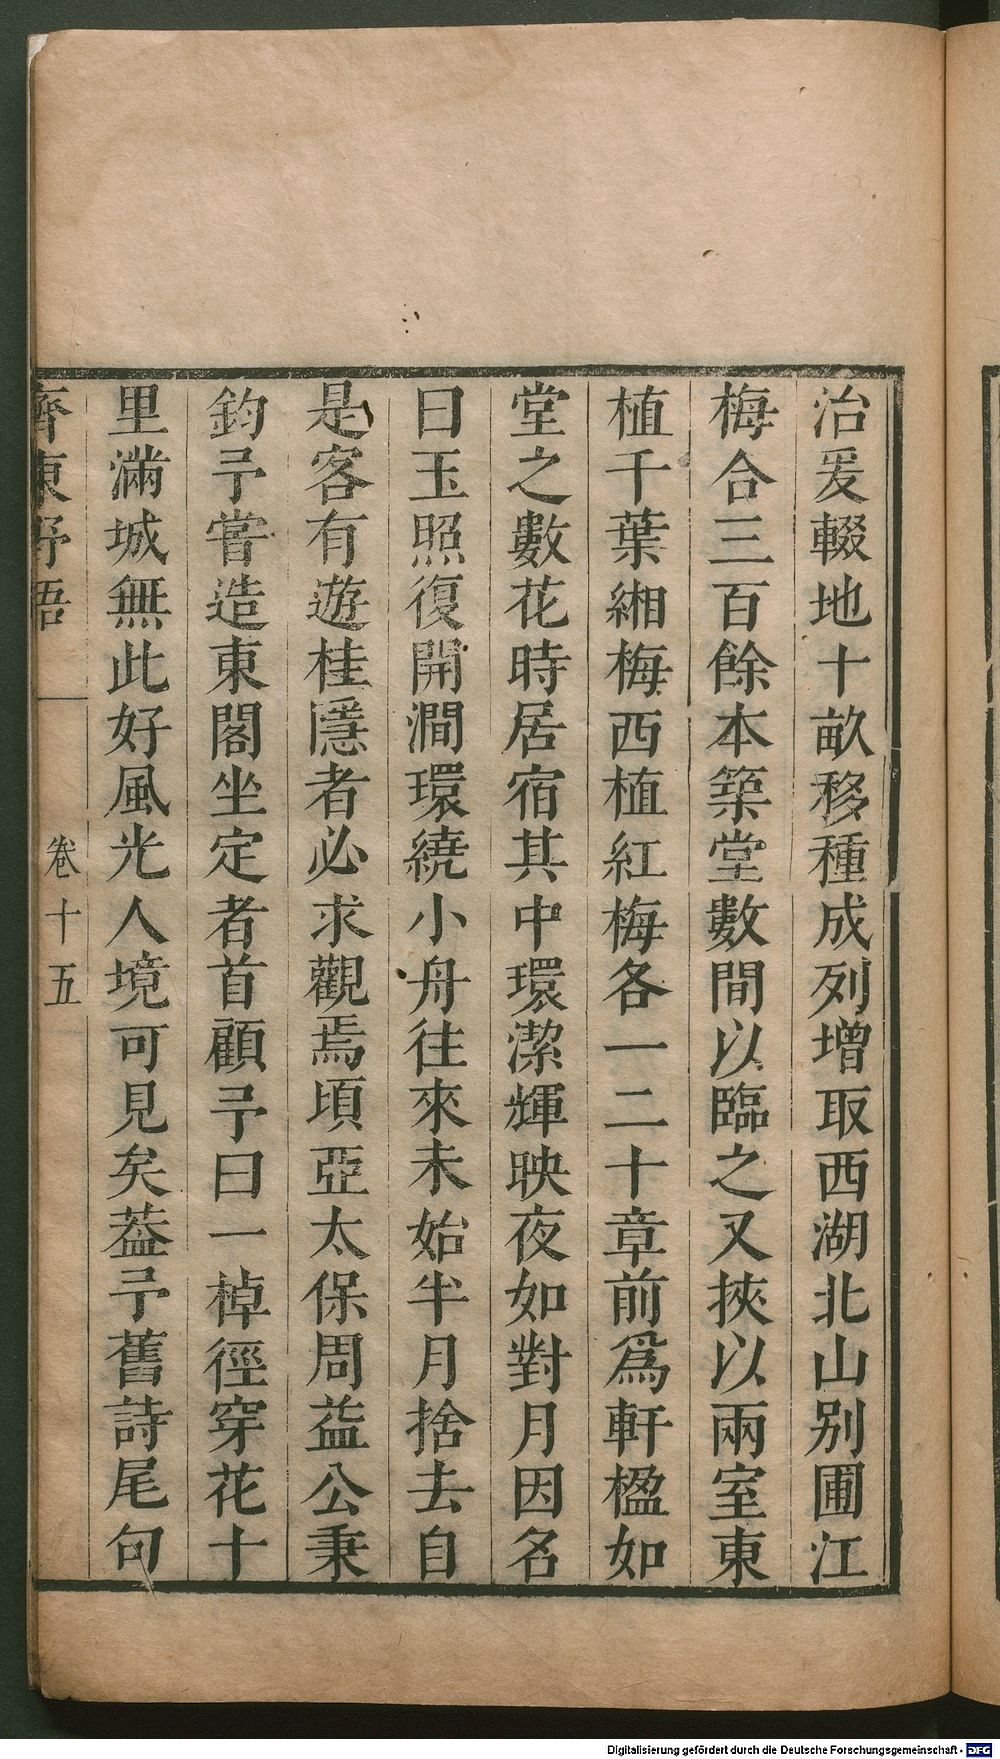 治爰輟地十畝移種成列增取西湖北山别圃江
梅合三百餘本築堂數間以臨之又挾以兩室東
植千葉緗梅西植紅梅各一二十章前爲軒楹如
堂之數花時居宿其中環潔輝映夜如對月因名
曰玉照復開澗環繞小舟往來未始半月捨去自
是客有遊桂隱者必求觀焉頃亞太保周益公秉
鈞予嘗造東閣坐定者首顧予曰一棹徑穿花十
里滿城無此好風光人境可見矣葢予舊詩尾句
齊東野語
卷十五
Digitalisierung gefördert durch die Deutsche Forschungsgemeinschaft - DFG